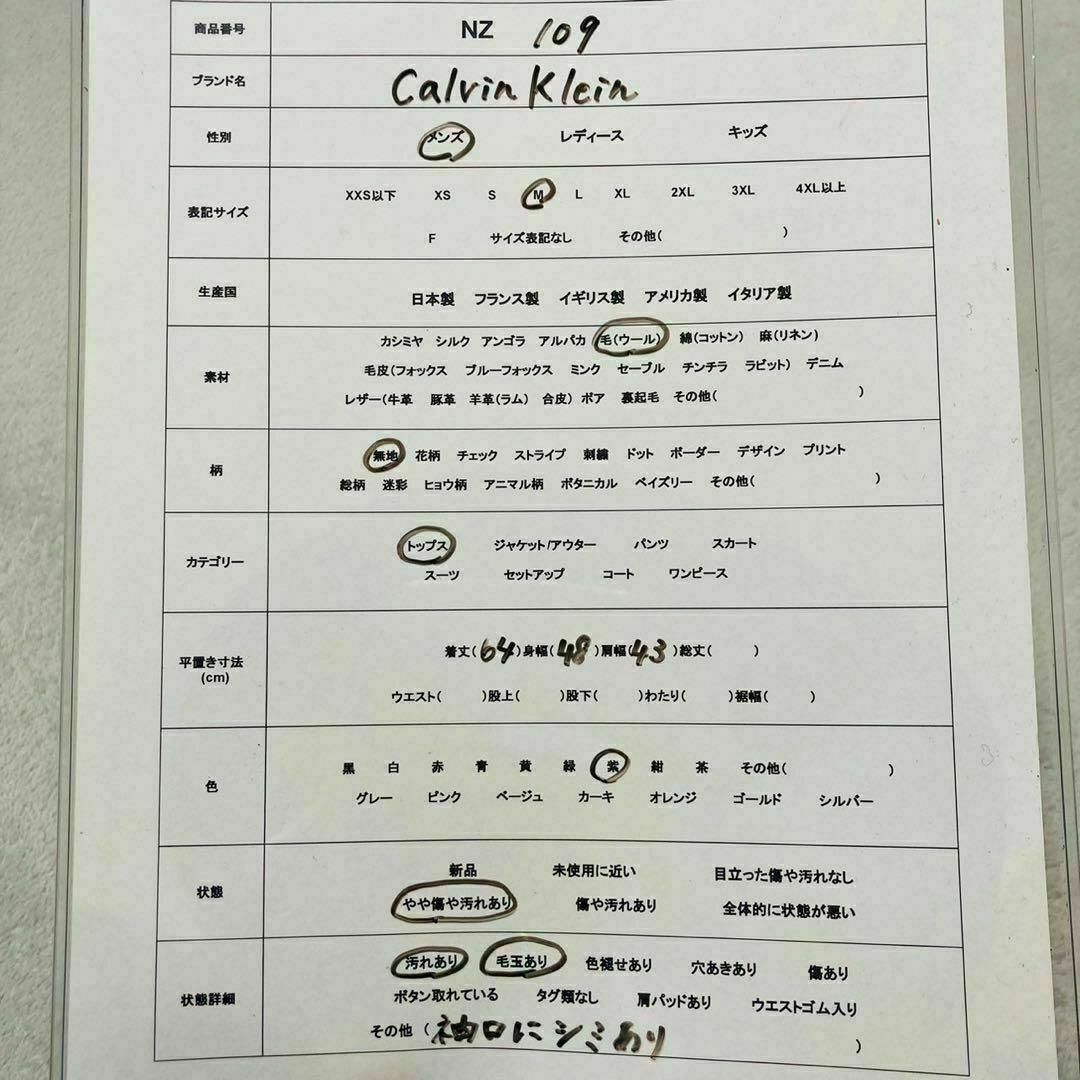 商品番号 NZ 109
ブランド名 Calvin Klein
性別 メンズ レディース キッズ
表記サイズ XXS以下 XS S M L XL 2XL 3XL 4XL以上
F サイズ表記なし その他( )
生産国 日本製 フランス製 イギリス製 アメリカ製 イタリア製
素材 カシミヤ シルク アンゴラ アルパカ 毛(ウール) 綿(コットン) 麻(リネン)
毛皮(フォックス ブルーフォックス ミンク セーブル チンチラ ラビット) デニム
レザー(牛革 豚革 羊革(ラム) 合皮) ボア 裏起毛 その他( )
柄 無地 花柄 チェック ストライプ 刺繍 ドット ボーダー デザイン プリント
総柄 迷彩 ヒョウ柄 アニマル柄 ボタニカル ペイズリー その他( )
カテゴリー トップス ジャケット/アウター パンツ スカート
スーツ セットアップ コート ワンピース
平置き寸法 (cm) 着丈(64)身幅(48)肩幅(43)総丈( )
ウエスト( )股上( )股下( )わたり( )裾幅( )
色 黒 白 赤 青 黄 緑 紫 紺 茶 その他( )
グレー ピンク ベージュ カーキ オレンジ ゴールド シルバー
状態 新品 未使用に近い 目立った傷や汚れなし
やや傷や汚れあり 傷や汚れあり 全体的に状態が悪い
状態詳細 汚れあり 毛玉あり 色褪せあり 穴あきあり 傷あり
ボタン取れている タグ類なし 肩パッドあり ウエストゴム入り
その他 (袖口にシミあり )